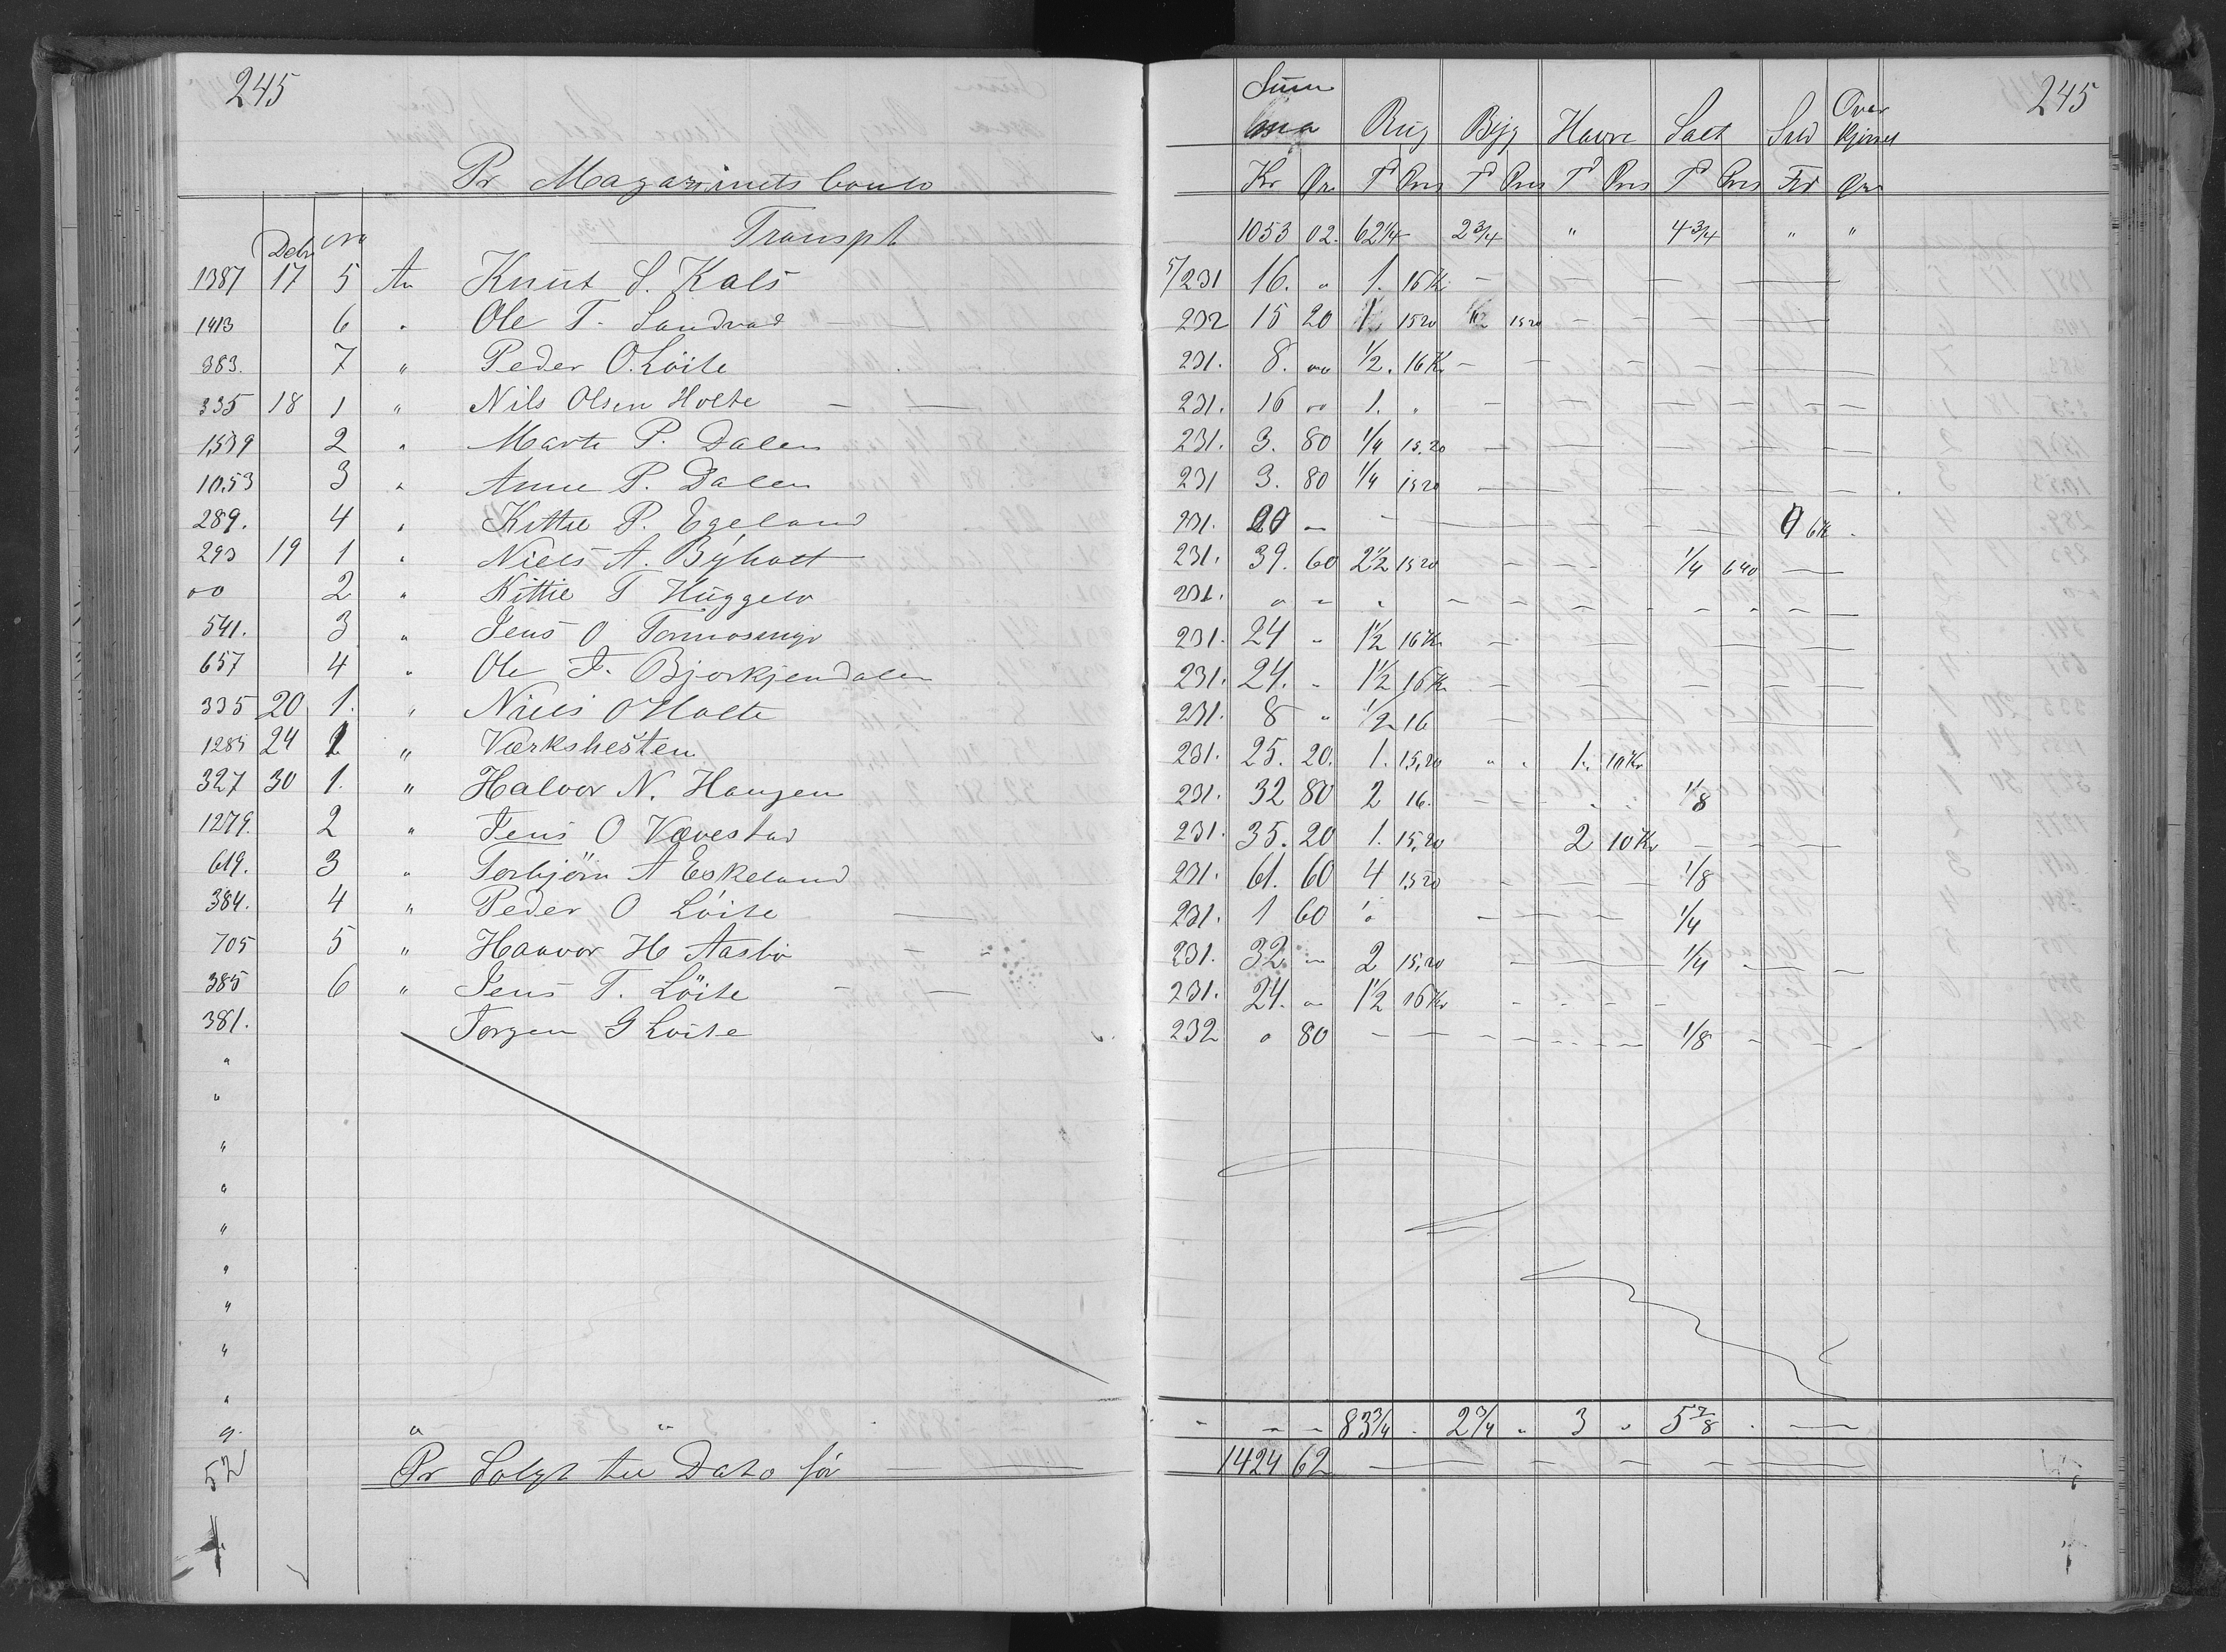 245 Summa Over 245
Rug Byg Havre Salt Kjörsel
Pr Magazinets Conto Kr Øre T Pris T Pris T Pris T Pris Øre
Transpt 1053 02. 62 1/4 2 3/4 " 4 3/4 " "
Debr No
1387 17 5 An Knut S. Kals 5/231 16. " 1. 16 Kr — — — —
1413 6 " Ole T. Sandvad — 232 15 20 1. 15 20 — — — —
383. 7 " Peder O. Löite 231. 8. " 1/2. 16 Kr — — — —
335 18 1 " Nils Olsen Holte — — 231. 16 " 1. " — — — —
1539 2 " Marte P. Dalen 231. 3. 80 1/4 15,20 — — — —
1053 3 " Anne P. Dalen 231 3. 80 1/4 15 20 — — — —
289. 4 " Kittil P. Egeland 231. — — — — — 6 Kr
293 19 1 " Niels A. Byholt 231. 39. 60 2 1/2 15 20 — — — 1/4 6 40 —
" 2 " Kittil T Huggelv 231. " " " — — — —
541. 3 " Jens O Tormosmyr 231. 24 " 1 1/2 16 Kr — — — —
657 4 " Ole T. Bjorkjendalen 231. 24. " 1 1/2 16 Kr — — — —
335 20 1. " Niels O Holte 231. 8 " 1/2 16 — — — —
1285 24 1 " Værkshesten 231. 25. 20. 1. 15,20 " " 1. 10 Kr
327 30 1. " Halvor N. Haugen 231. 32 80 2 16. — — " " 1/8
1279. 2 " Jens O Vævestad 231. 35. 20 1. 15,20 2 10 Kr — — —
619. 3 " Torbjörn A Eskeland 231. 61. 60 4 15 20 — — — 1/8
384. 4 " Peder O Löite — 231. 1 60 " — — — 1/4
705 5 " Haavor H Aasbö — 231. 32 — 2 15,20 — — — 1/4 — — —
385 6 " Jens T. Löite — — 231. 24. " 1 1/2 16 Kr — — — —
381. Jörgen G Löite 232 " 80 — — — — — 1/8 — —
"
"
"
"
"
"
"
"
"
" " " — — — 83 3/4 " 2 3/4 " 3 " 5 7/8 " —
52 Pr Solgt til Dato för — — 1424 62 — — — — — —